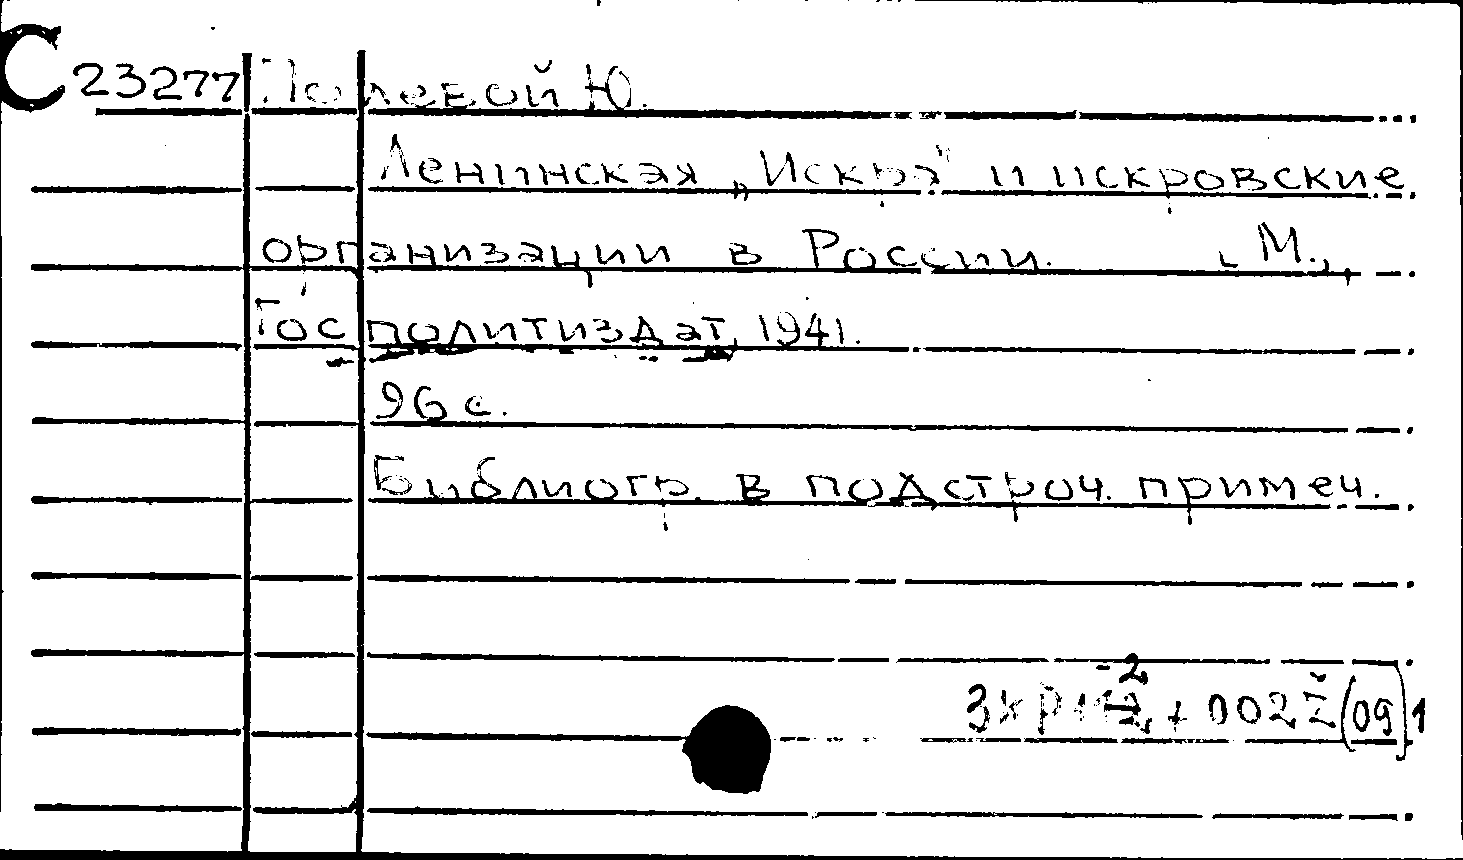 С 23277 Полевой Ю.
Ленинская „Искра" и искровские
организации в России. М.,
Госполитиздат, 1941.
96 с.
Библиогр. в подстроч. примеч.
+ 002ž(09)1